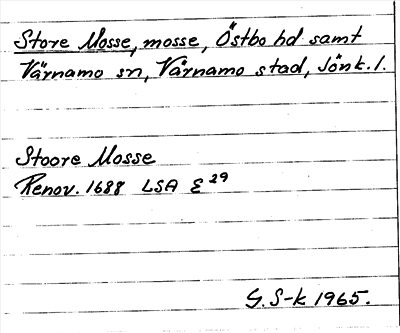 Store Mosse, mosse, Östbo hd samt
Värnamo sn, Värnamo stad, Jönk. l.
Stoore Mosse
Renov. 1688 LSA E 29
G. S-k 1965.